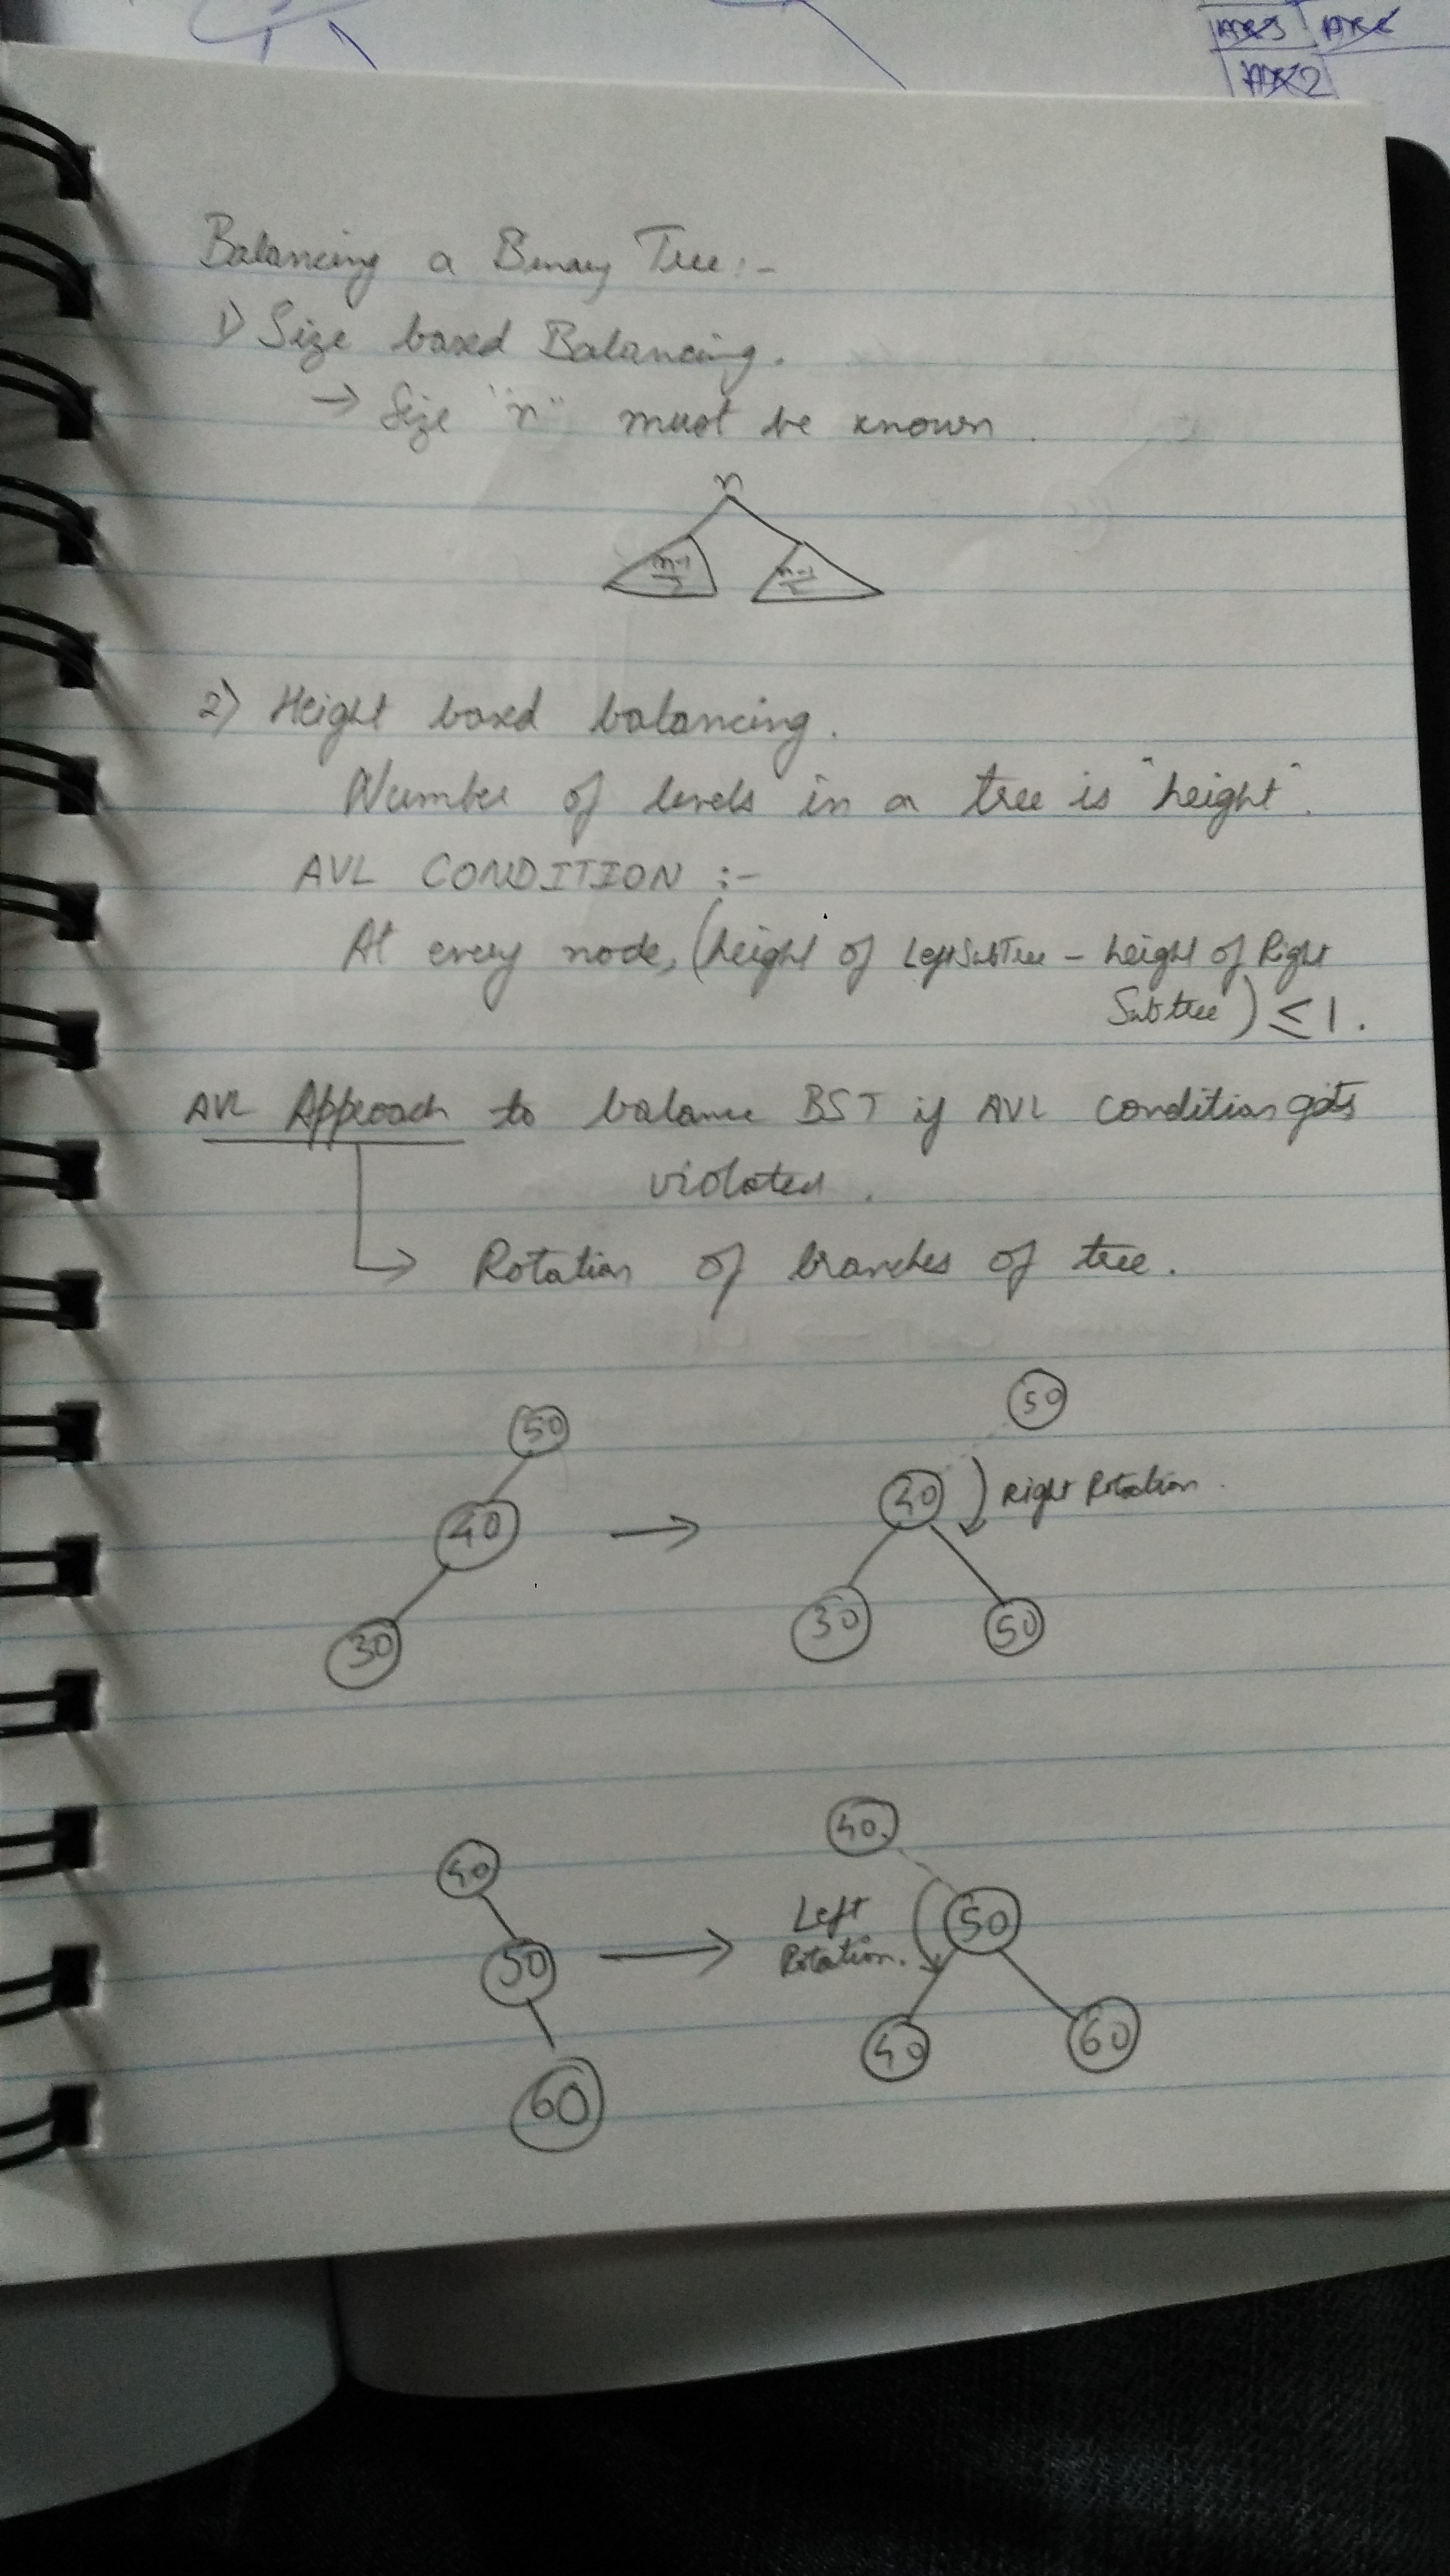 Balancing a Binary Tree :-
1) Size based Balancing.
→ Size "n" must be known.
n
n-1/2 n-1/2
2) Height based balancing.
Number of levels in a tree is "height".
AVL CONDITION :-
At every node, (height of LeftSubTree - height of Right
Subtree) ≤ 1.
AVL Approach to balance BST if AVL condition gets
violated.
→ Rotation of branches of tree.
50
50
40 → 40 Right Rotation.
30 30 50
40
40
50 → Left Rotation. 50
40 60
60